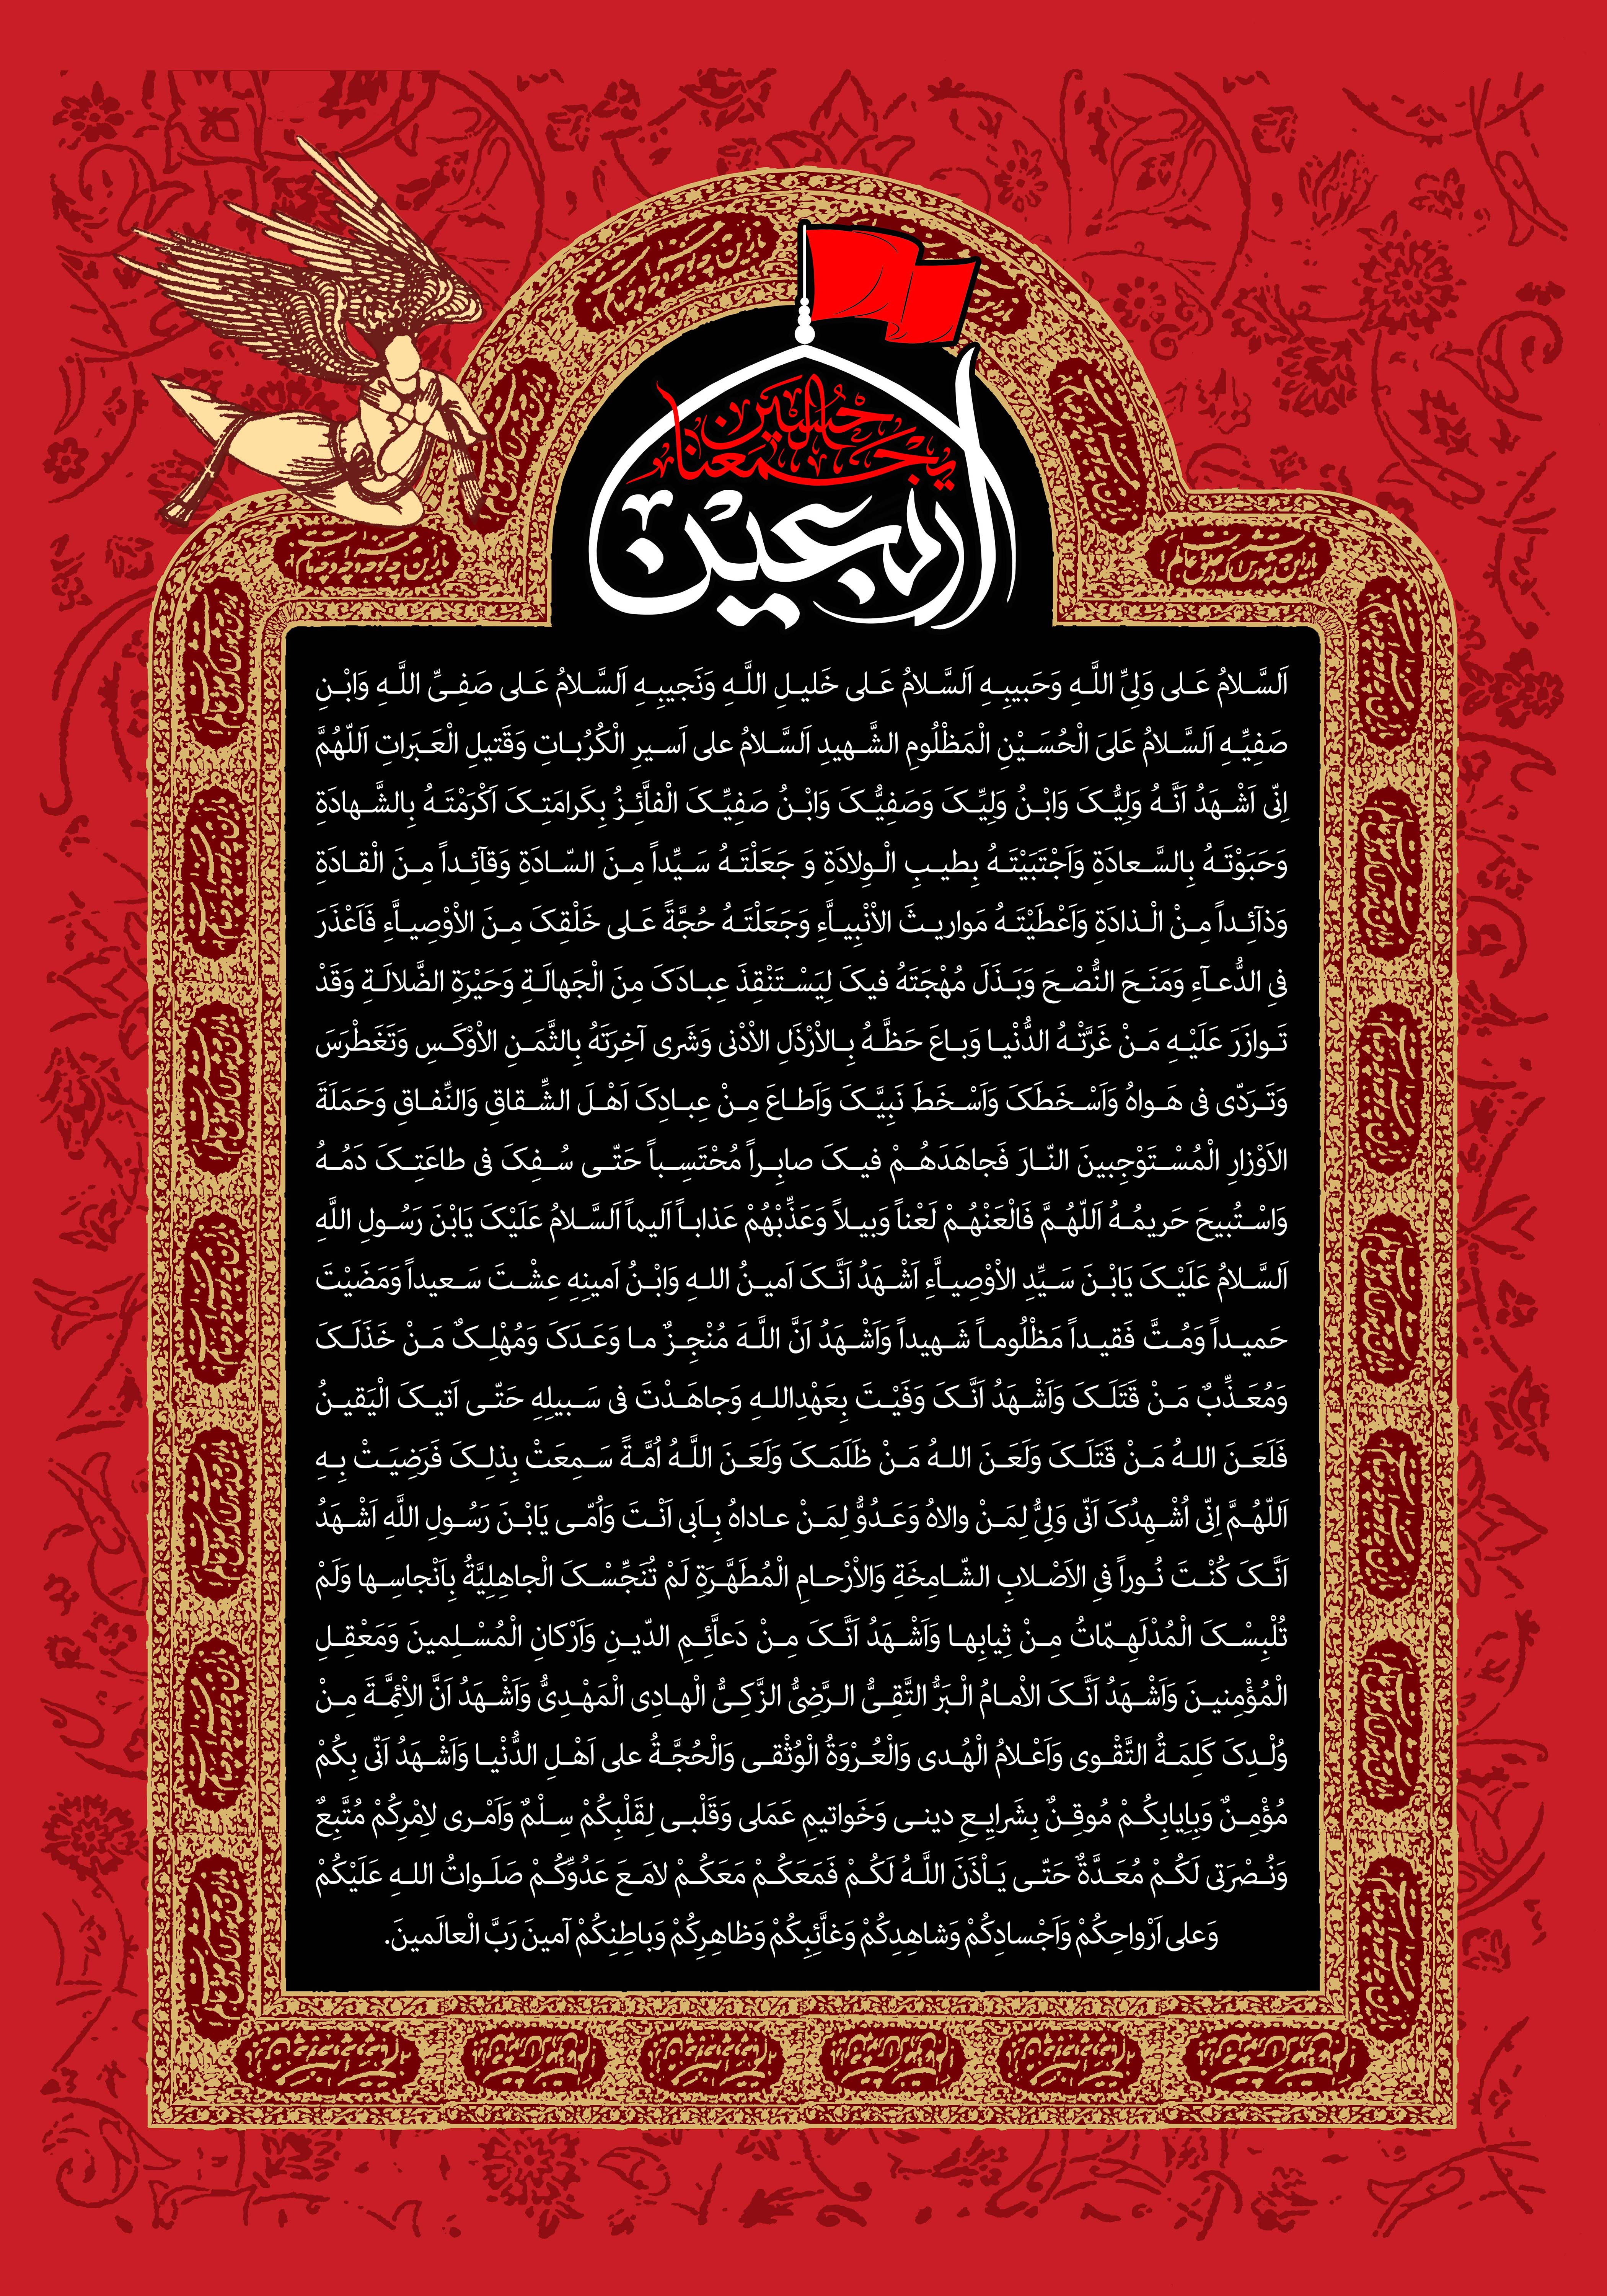 حُسَیْن
یَجْـمَعُنا
اربعین
اَلسَّـلامُ عَـلى وَلِیِّ اللَّـهِ وَحَبیبِـهِ اَلسَّـلامُ عَـلى خَلیـلِ اللَّـهِ وَنَجیبِـهِ اَلسَّـلامُ عَـلى صَفِـىِّ اللَّـهِ وَابْـنِ
صَفِیِّـهِ اَلسَّـلامُ عَلىَ الْحُسَـیْنِ الْمَظْلُومِ الشَّـهیدِ اَلسَّـلامُ على اَسـیرِ الْکُرُبـاتِ وَقَتیلِ الْعَـبَراتِ اَللّهُمَّ
اِنّى اَشْـهَدُ اَنَّـهُ وَلِیُّـکَ وَابْـنُ وَلِیِّـکَ وَصَفِیُّـکَ وَابْـنُ صَفِیِّـکَ الْفآئِـزُ بِکَرامَتِـکَ اَکْرَمْتَـهُ بِالشَّـهادَةِ
وَحَبَوْتَـهُ بِالسَّـعادَةِ وَاَجْتَبَیْتَـهُ بِطیـبِ الْـوِلادَةِ وَ جَعَلْتَـهُ سَـیِّداً مِـنَ السّـادَةِ وَقآئِـداً مِـنَ الْقـادَةِ
وَذآئِـداً مِـنْ الْـذادَةِ وَاَعْطَیْتَـهُ مَواریـثَ الاْنْبِیـآءِ وَجَعَلْتَـهُ حُجَّةً عَـلى خَلْقِکَ مِـنَ الاْوْصِیـآءِ فَاَعْذَرَ
فىِ الدُّعـآءِ وَمَنَـحَ النُّصْـحَ وَبَـذَلَ مُهْجَتَهُ فیکَ لِیَسْـتَنْقِذَ عِبـادَکَ مِنَ الْجَهالَـةِ وَحَیْرَةِ الضَّلالَـةِ وَقَدْ
تَـوازَرَ عَلَیْـهِ مَـنْ غَرَّتْـهُ الدُّنْیـا وَبـاعَ حَظَّـهُ بِـالاْرْذَلِ الاْدْنى وَشَرى آخِرَتَهُ بِالثَّمَـنِ الاْوْکَـسِ وَتَغَطْرَسَ
وَتَـرَدّى فى هَـواهُ وَاَسْـخَطَکَ وَاَسْـخَطَ نَبِیَّـکَ وَاَطـاعَ مِـنْ عِبـادِکَ اَهْـلَ الشِّـقاقِ وَالنِّفـاقِ وَحَمَلَةَ
الاَوْزارِ الْمُسْـتَوْجِبینَ النّـارَ فَجاهَدَهُـمْ فیـکَ صابِـراً مُحْتَسِـباً حَتّـى سُـفِکَ فى طاعَتِـکَ دَمُـهُ
وَاسْـتُبیحَ حَریمُـهُ اَللّهُـمَّ فَالْعَنْهُـمْ لَعْناً وَبیـلاً وَعَذِّبْهُمْ عَذابـاً اَلیماً اَلسَّـلامُ عَلَیْکَ یَابْنَ رَسُـولِ اللَّهِ
اَلسَّـلامُ عَلَیْـکَ یَابْـنَ سَـیِّدِ الاْوْصِیـآءِ اَشْـهَدُ اَنَّـکَ اَمیـنُ اللـهِ وَابْـنُ اَمینِهِ عِشْـتَ سَـعیداً وَمَضَیْتَ
حَمیـداً وَمُـتَّ فَقیـداً مَظْلُومـاً شَـهیداً وَاَشْـهَدُ اَنَّ اللَّـهَ مُنْجِـزٌ مـا وَعَـدَکَ وَمُهْلِـکٌ مَـنْ خَذَلَـکَ
وَمُعَـذِّبٌ مَـنْ قَتَلَـکَ وَاَشْـهَدُ اَنَّـکَ وَفَیْـتَ بِعَهْدِاللـهِ وَجاهَـدْتَ فى سَـبیلِهِ حَتّـى اَتیـکَ الْیَقیـنُ
فَلَعَـنَ اللـهُ مَـنْ قَتَلَـکَ وَلَعَـنَ اللـهُ مَـنْ ظَلَمَـکَ وَلَعَـنَ اللَّـهُ اُمَّـةً سَـمِعَتْ بِذلِـکَ فَرَضِیَـتْ بِـهِ
اَللّهُـمَّ اِنّى اُشْـهِدُکَ اَنّى وَلِىُّ لِمَـنْ والاهُ وَعَـدُوُّ لِمَـنْ عـاداهُ بِـاَبى اَنْـتَ وَاُمّـى یَابْـنَ رَسُـولِ اللَّهِ اَشْـهَدُ
اَنَّـکَ کُنْـتَ نُـوراً فىِ الاَصْـلابِ الشّـامِخَةِ وَالاْرْحـامِ الْمُطَهَّـرَةِ لَمْ تُنَجِّسْـکَ الْجاهِلِیَّةُ بِاَنْجاسِـها وَلَمْ
تُلْبِسْـکَ الْمُدْلَهِـمّاتُ مِـنْ ثِیابِهـا وَاَشْـهَدُ اَنَّـکَ مِـنْ دَعآئِـمِ الدّیـنِ وَاَرْکانِ الْمُسْـلِمینَ وَمَعْقِـلِ
الْمُؤْمِنیـنَ وَاَشْـهَدُ اَنَّـکَ الاْمـامُ الْـبَرُّ التَّقِـىُّ الـرَّضِىُّ الزَّکِـىُّ الْهـادِى الْمَهْـدِىُّ وَاَشْـهَدُ اَنَّ الاْئِمَّـةَ مِـنْ
وُلْـدِکَ کَلِمَـةُ التَّقْـوى وَاَعْـلامُ الْهُـدى وَالْعُـرْوَةُ الْوُثْقـى وَالْحُجَّـةُ على اَهْـلِ الدُّنْیـا وَاَشْـهَدُ اَنّى بِکُمْ
مُؤْمِـنٌ وَبِاِیابِکُـمْ مُوقِـنٌ بِشَرایِـعِ دینـى وَخَواتیمِ عَمَلى وَقَلْبـى لِقَلْبِکُمْ سِـلْمٌ وَاَمْـرى لاِمْرِکُمْ مُتَّبِعٌ
وَنُـصْرَتى لَکُـمْ مُعَـدَّةٌ حَتّـى یَـأْذَنَ اللَّـهُ لَکُـمْ فَمَعَکُـمْ مَعَکُـمْ لامَـعَ عَدُوِّکُـمْ صَلَـواتُ اللـهِ عَلَیْکُمْ
وَعلى اَرْواحِکُمْ وَاَجْسادِکُمْ وَشاهِدِکُمْ وَغآئِبِکُمْ وَظاهِرِکُمْ وَباطِنِکُمْ آمینَ رَبَّ الْعالَمینَ.